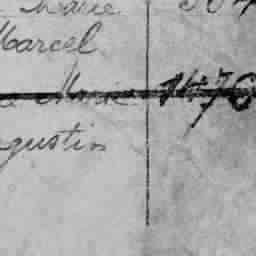 Marie 304
Marcel
Marie 1476
gustin